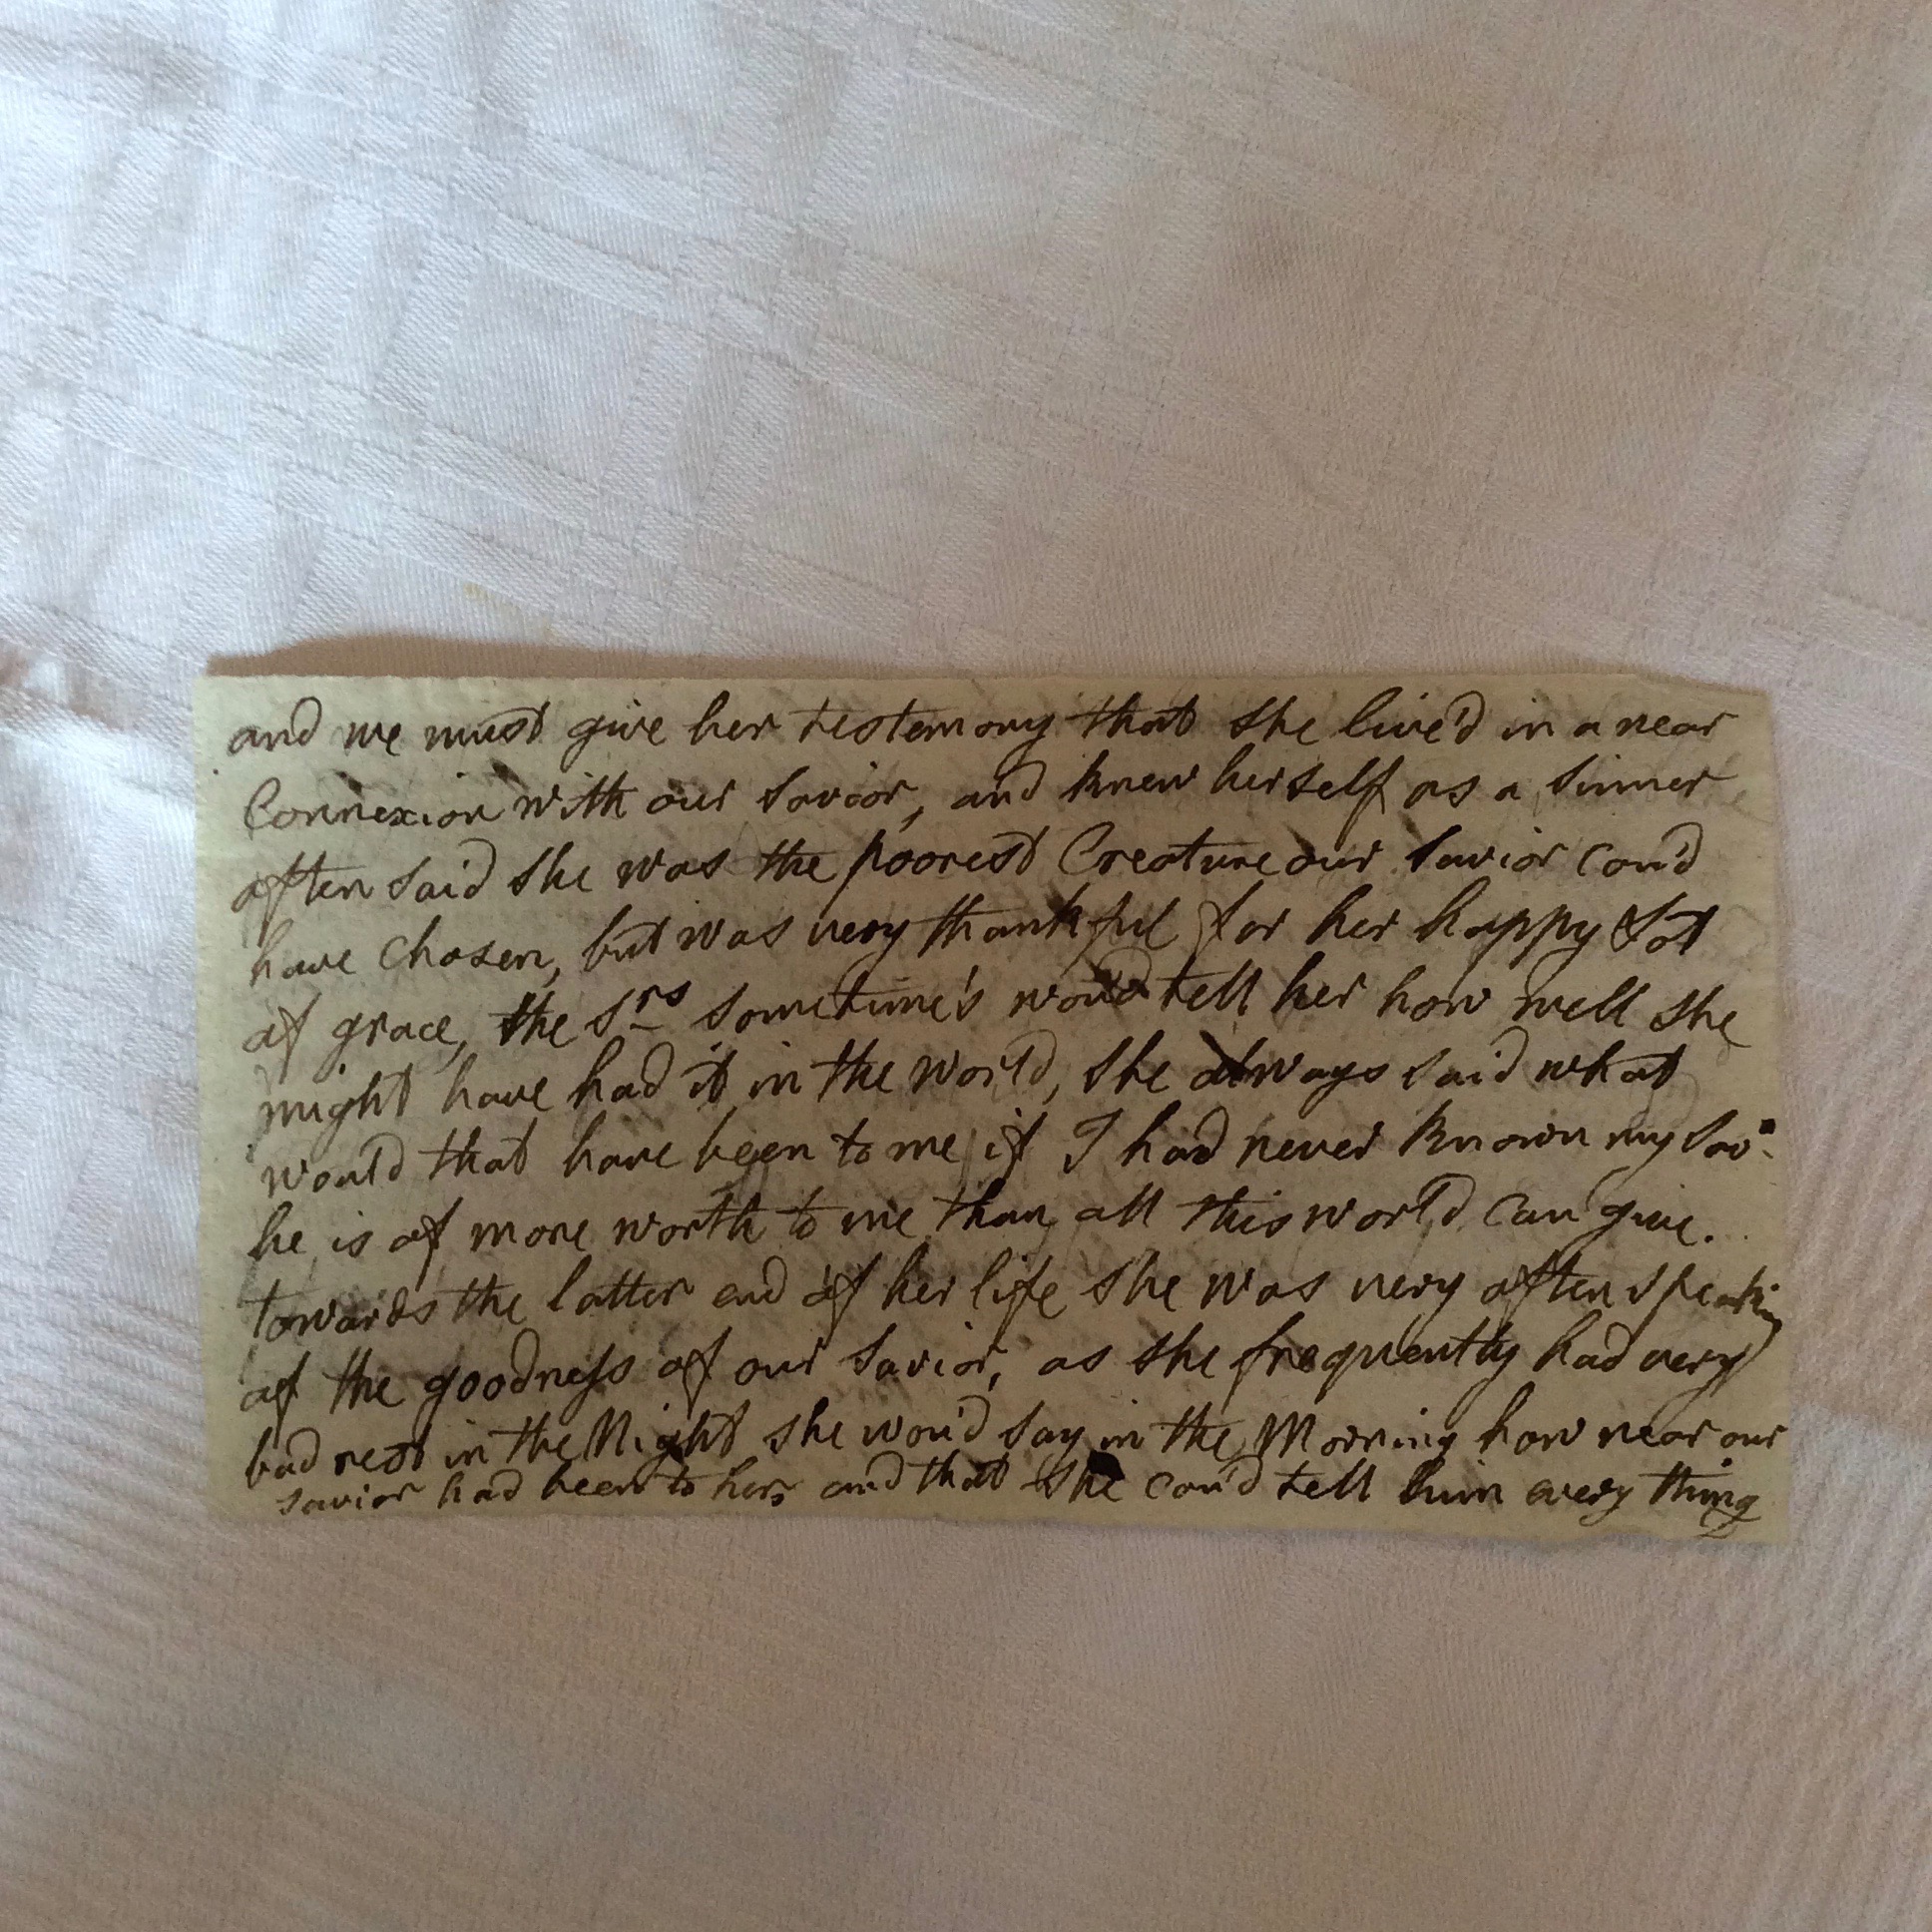 and we must give her testemony that she live'd in a near
Connexion with our Savior, and knew herself as a Sinner
often said she was the poorest Creature our Savior cou'd
have chosen, but was very thankful for her happy Lot
of grace, the Srs sometime's would tell her how well she
might have had it in the world, she always said what
would that have been to me if I had never known my Savr.
he is of more worth to me than all this world can give.
towards the latter end of her life she was very often speaking
of the goodness of our Savior, as she frequently had very
bad rest in the Night she wou'd say in the Morning how near our
savior had been to her, and that she cou'd tell him every thing